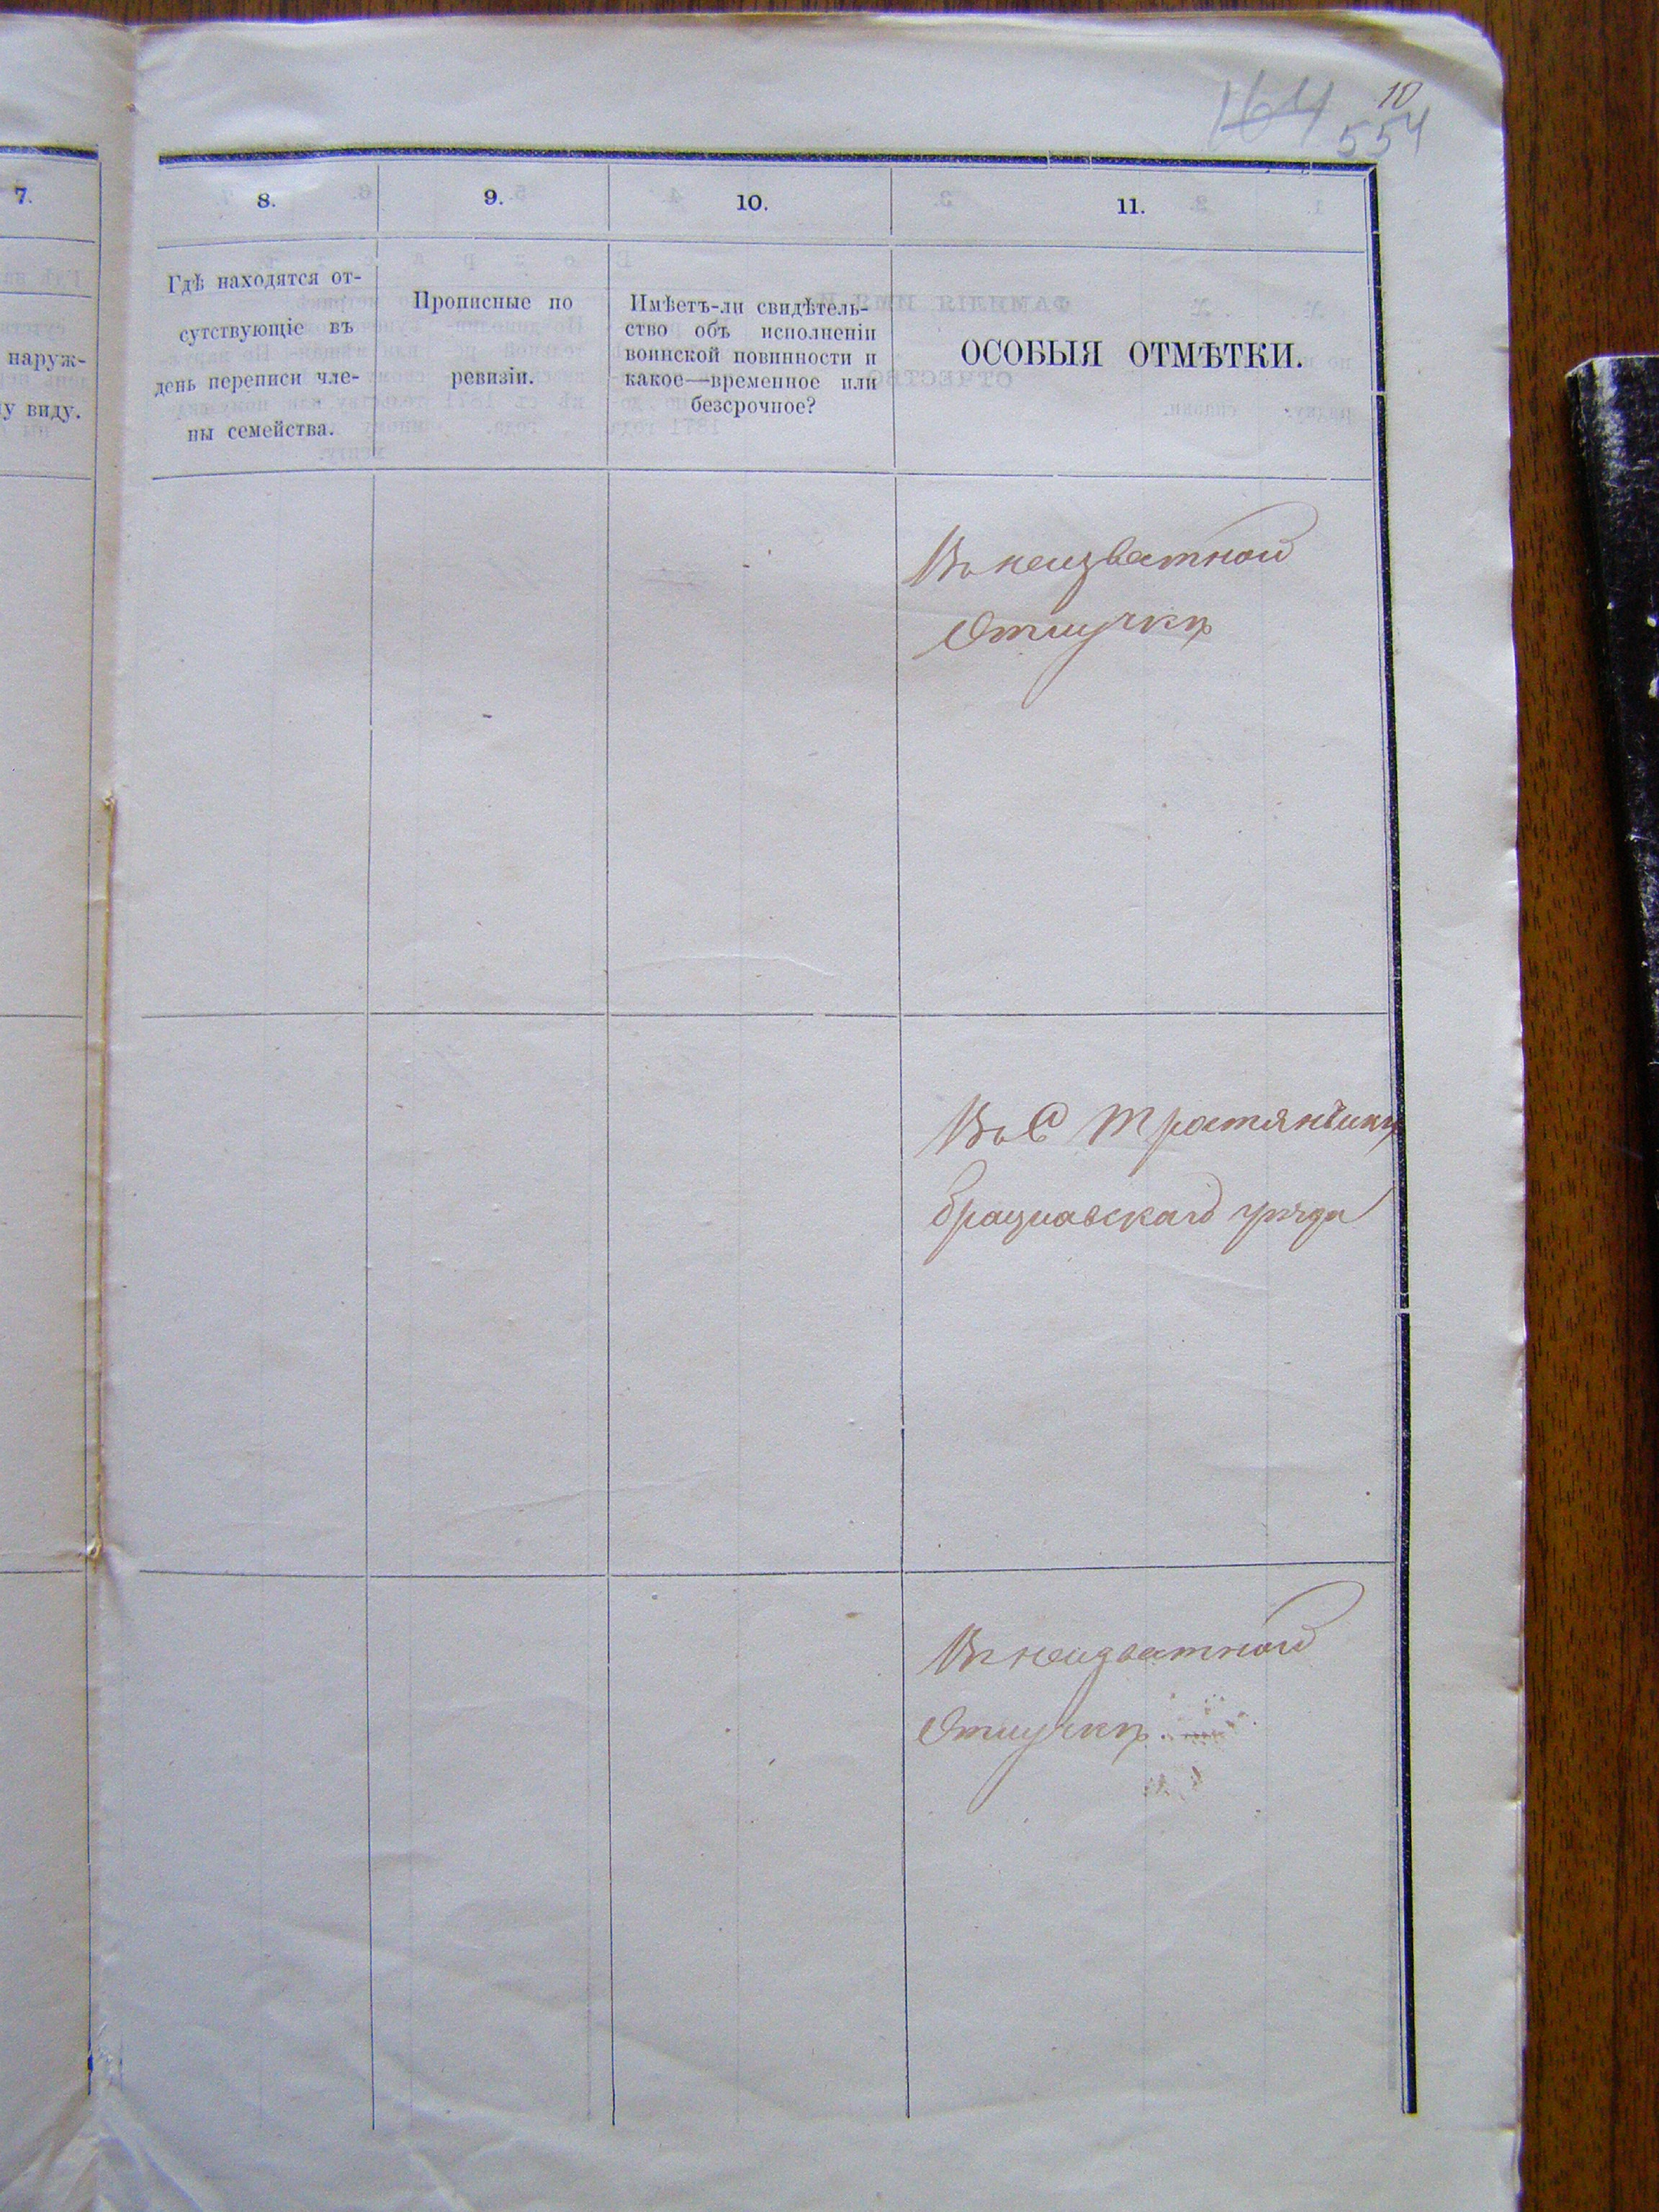 10
164
554
7.
наруж-
у виду.
8.
9.
10.
11.
Гдѣ находятся от-
сутствующіе въ
день переписи чле-
ны семейства.
Прописные по
ревизіи.
Имѣетъ-ли свидѣтель-
ство объ исполненіи
воинской повинности и
какое—временное или
безсрочное?
ОСОБЫЯ ОТМѢТКИ.
Въ неизвѣтной
Отлучкѣ
Въ С Тростянчикѣ
брацлавскаго уѣзда
Въ неизвѣтной
Отлучкѣ.